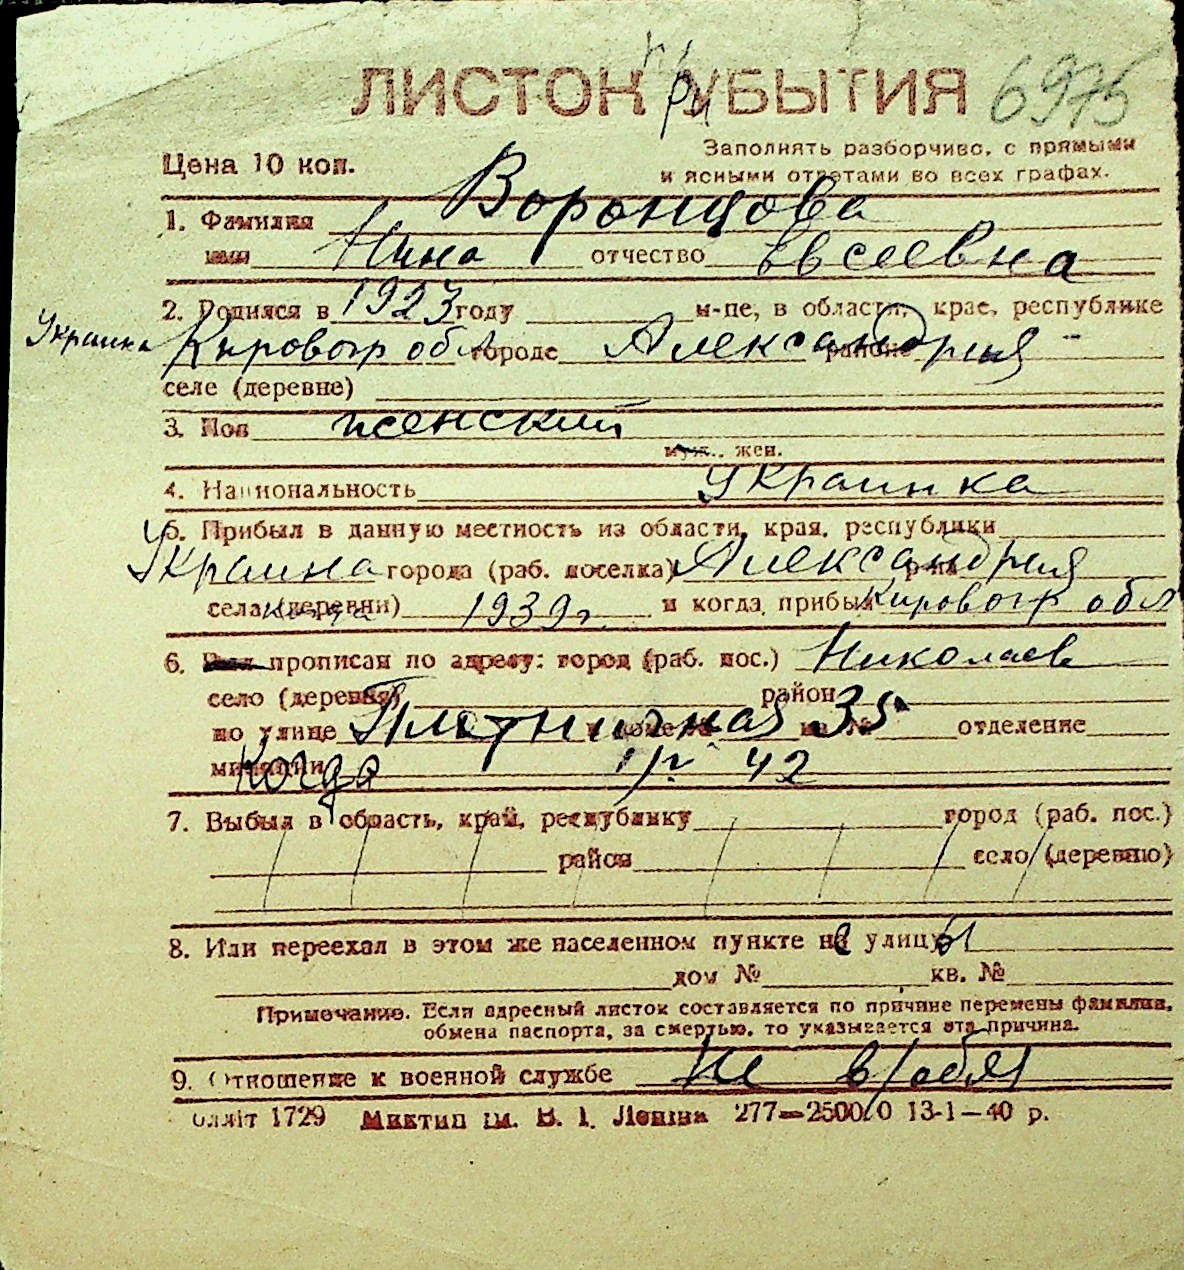 ЛИСТОК при УБЫТИЯ 6975
Цена 10 коп. Заполнять разборчиво, с прямыми
и ясными ответами во всех графах.
1. Фамилия Воронцова
имя Нина отчество Евсеевна
2. Родился в 1923 году м-це, в области, крае, республике
Украина Кировогр обл городе Александрия районе
селе (деревне)
3. Пол женский
муж., жен.
4. Национальность Украинка
5. Прибыл в данную местность из области, края, республики
Украина города (раб. поселка) Александрия р-на
села (деревни) 1939 г. и когда прибыл Кировогр обл
6. прописан по адресу: город (раб. пос.) Николаев
село (деревня) район
по улице 35 отделение
милиции Когда 42
7. Выбыл в область, край, республику город (раб. пос.)
район село (деревню)
8. Или переехал в этом же населенном пункте на улицу
дом № кв. №
Примечание. Если адресный листок составляется по причине перемены фамилии,
обмена паспорта, за смертью, то указывается эта причина.
9. Отношение к военной службе не в/обяз
1729 Миктип ім. В. І. Леніна 277—2500.0 13-1—40 р.